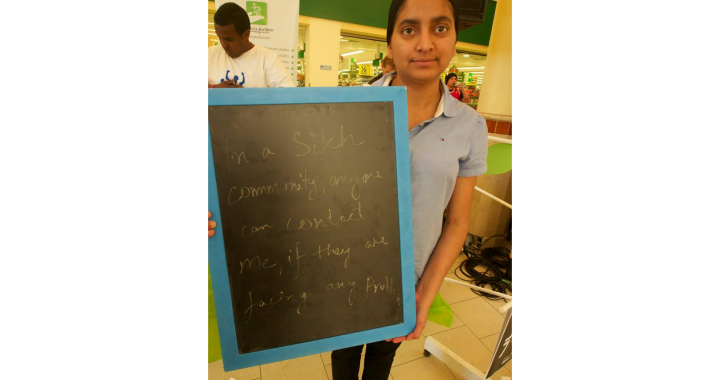 in a Sikh
community, anyone
can contact
me, if they are
facing any